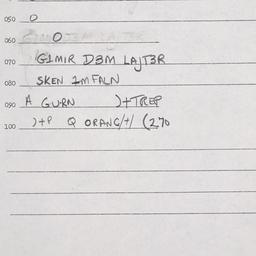 050 O
060 O
070 G1MIR D3M LAJT3R
080 SKEN 1MFALN
090 A GURN )+TREP
100 )+P Q ORANG/+/ (270